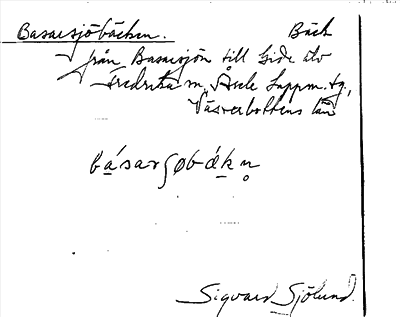 Basarsjöbäcken. Bäck
från Basarsjön till Gide älv
Fredrika sn, Åsele Lappm. tg.,
Västerbottens län
básarʃøbák̠n̥
Sigvard Sjölund.